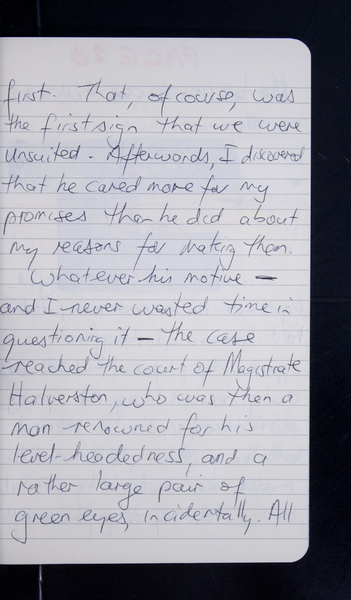 first. That, of course, was
the first sign that we were
unsuited. Afterwords, I discovered
that he cared more for my
promises than he did about
my reasons for making them.
Whatever his motive –
and I never wasted time in
questioning it – the case
reached the court of Magistrate
Halverston, who was then a
man renowned for his
level-headedness, and a
rather large pair of
green eyes, incidentally. All